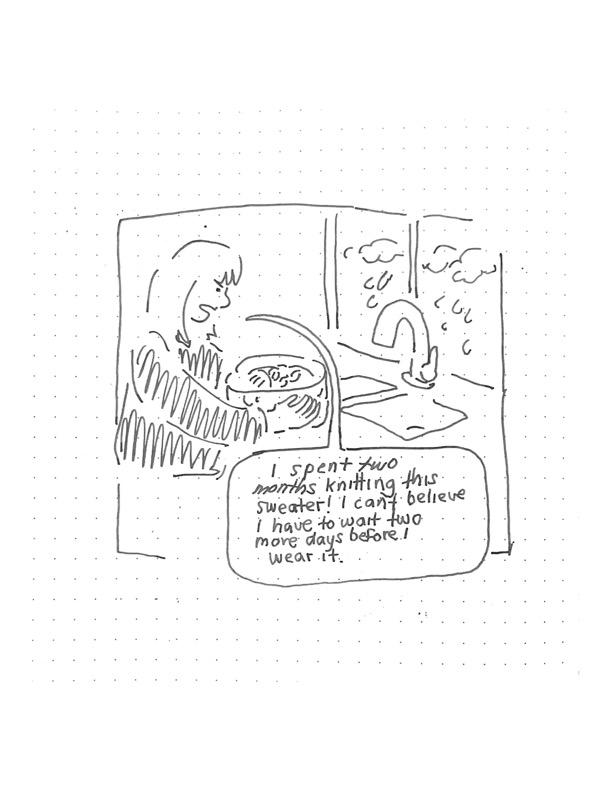 I spent two
months knitting this
sweater! I can't believe
I have to wait two
more days before I
wear it.